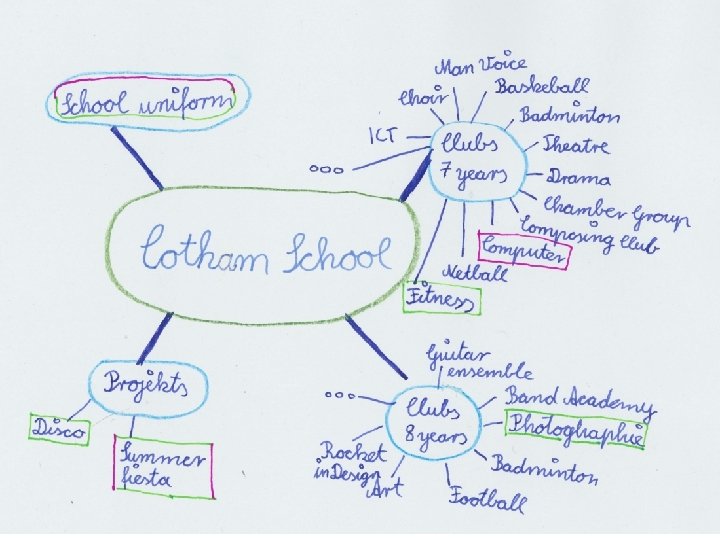 School uniform
Man Voice
Baskeball
Choir
Badminton
ICT
Clubs
7 years
Theatre
ooo
Drama
Chamber Group
Composing Club
Computer
Netball
Fitness
Cotham School
Projekts
Disco
Summer
fiesta
Guitar
ensemble
ooo
Band Academy
Clubs
8 years
Photographie
Rocket
in Design
Art
Badminton
Football